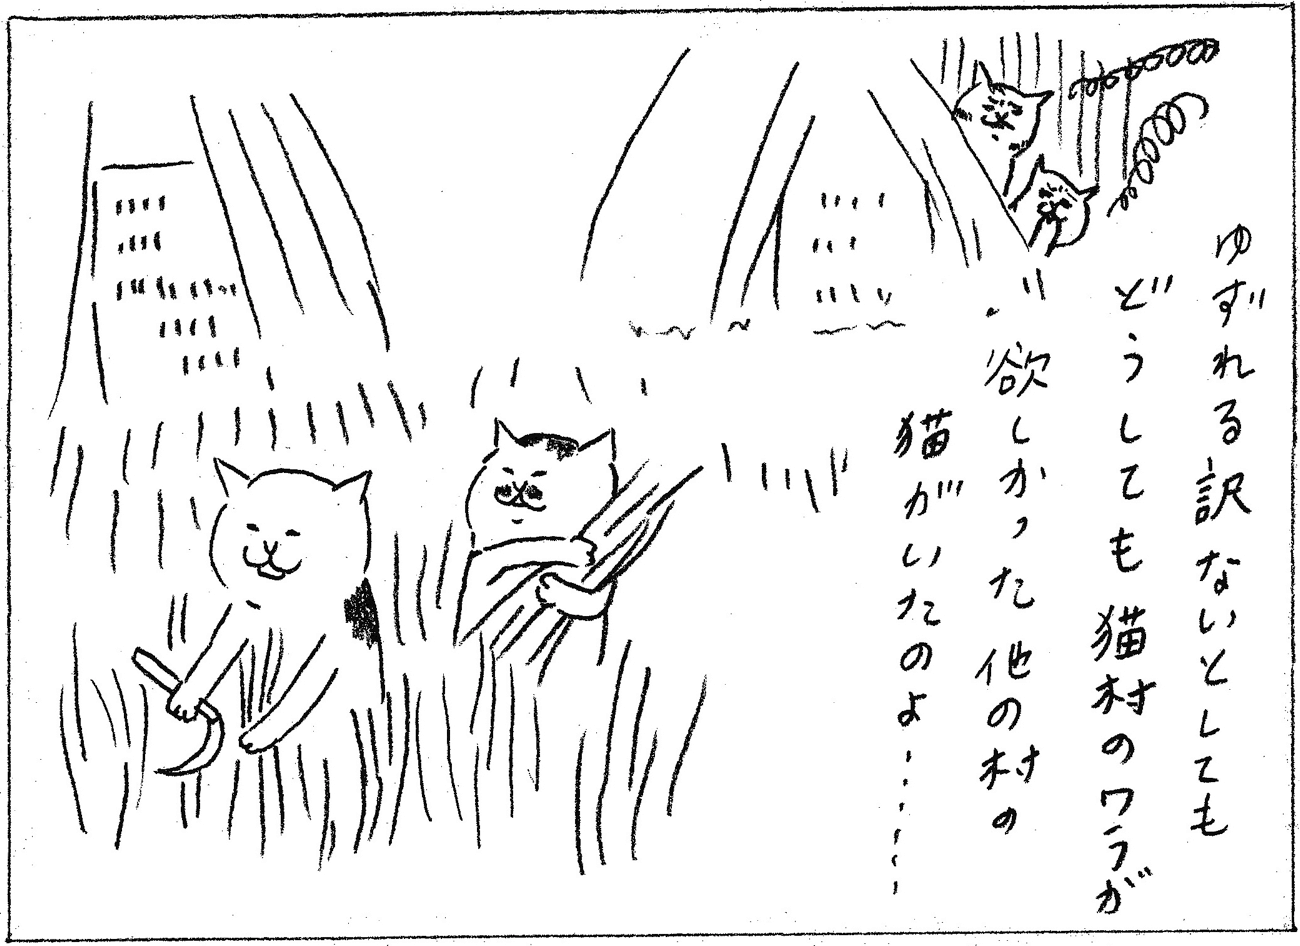 ゆずれる訳ないとしても
どうしても猫村のワラが
欲しかった他の村の
猫がいたのよ......